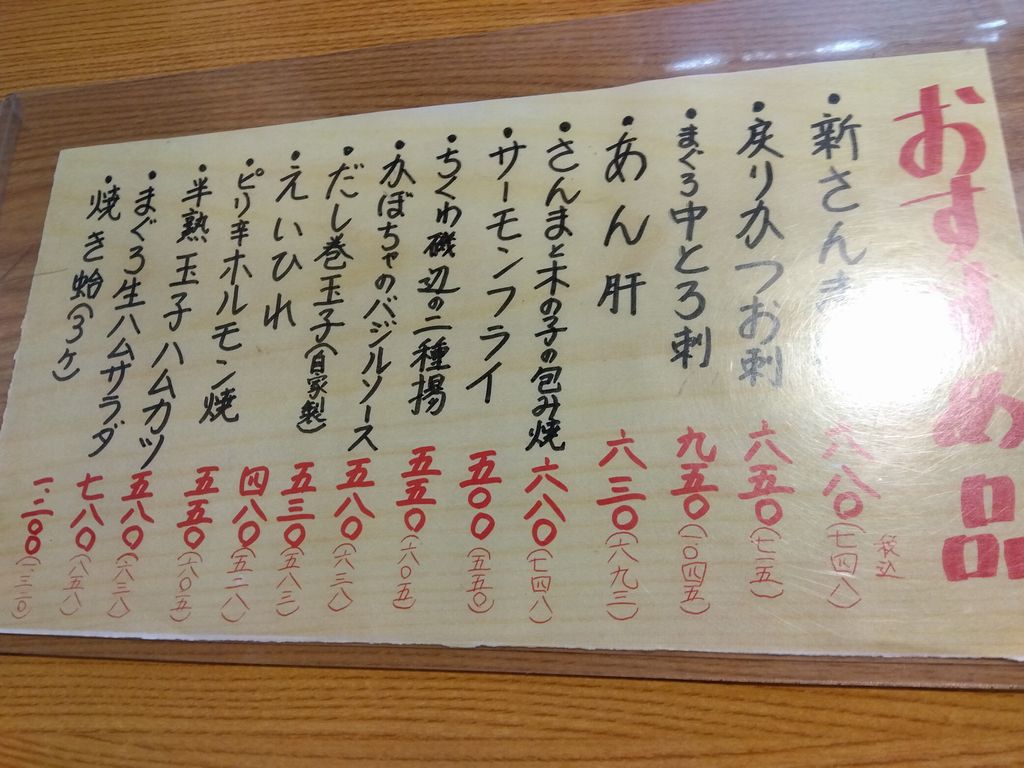 おすすめ品
税込
・新さんま 六八〇(七四八)
・戻りかつお刺 六五〇(七一五)
・まぐろ中とろ刺 九五〇(一〇四五)
・あん肝 六三〇(六九三)
・さんまと木の子の包み焼 六八〇(七四八)
・サーモンフライ 五〇〇(五五〇)
・ちくわ磯辺の二種揚 五五〇(六〇五)
・かぼちゃのバジルソース 五八〇(六三八)
・だし巻玉子(自家製) 五三〇(五八三)
・えいひれ 四八〇(五二八)
・ピリ辛ホルモン焼 五五〇(六〇五)
・半熟玉子ハムカツ 五八〇(六三八)
・まぐろ生ハムサラダ 七八〇(八五八)
・焼き蛤(3ヶ) 一.二〇〇(一三二〇)